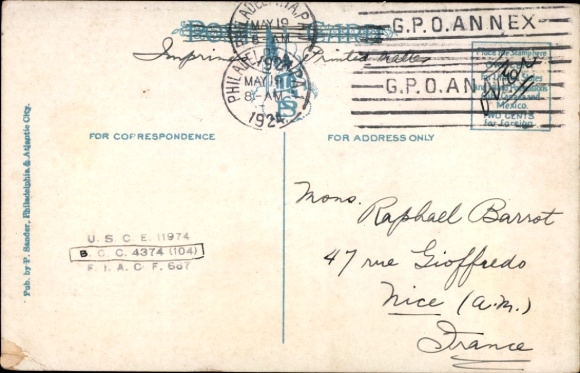 PHILADELPHIA, PA.
MAY 19
8 - AM
1924
G.P.O. ANNEX
Imprimé Printed Matter
PHILADELPHIA, PA.
MAY 19
8 - AM
1924
G.P.O. ANNEX
Place the Stamp here
for United States
and
Mexico.
TWO CENTS
for Foreign
FOR CORRESPONDENCE
FOR ADDRESS ONLY
Mons. Raphael Barrot
47 rue Gioffredo
Nice (A.M.)
France
U. S. C. E. 11974
B. C. C. 4374 (104)
F. I. A. C. F. 567
Pub. by P. Sander, Philadelphia & Atlantic City.